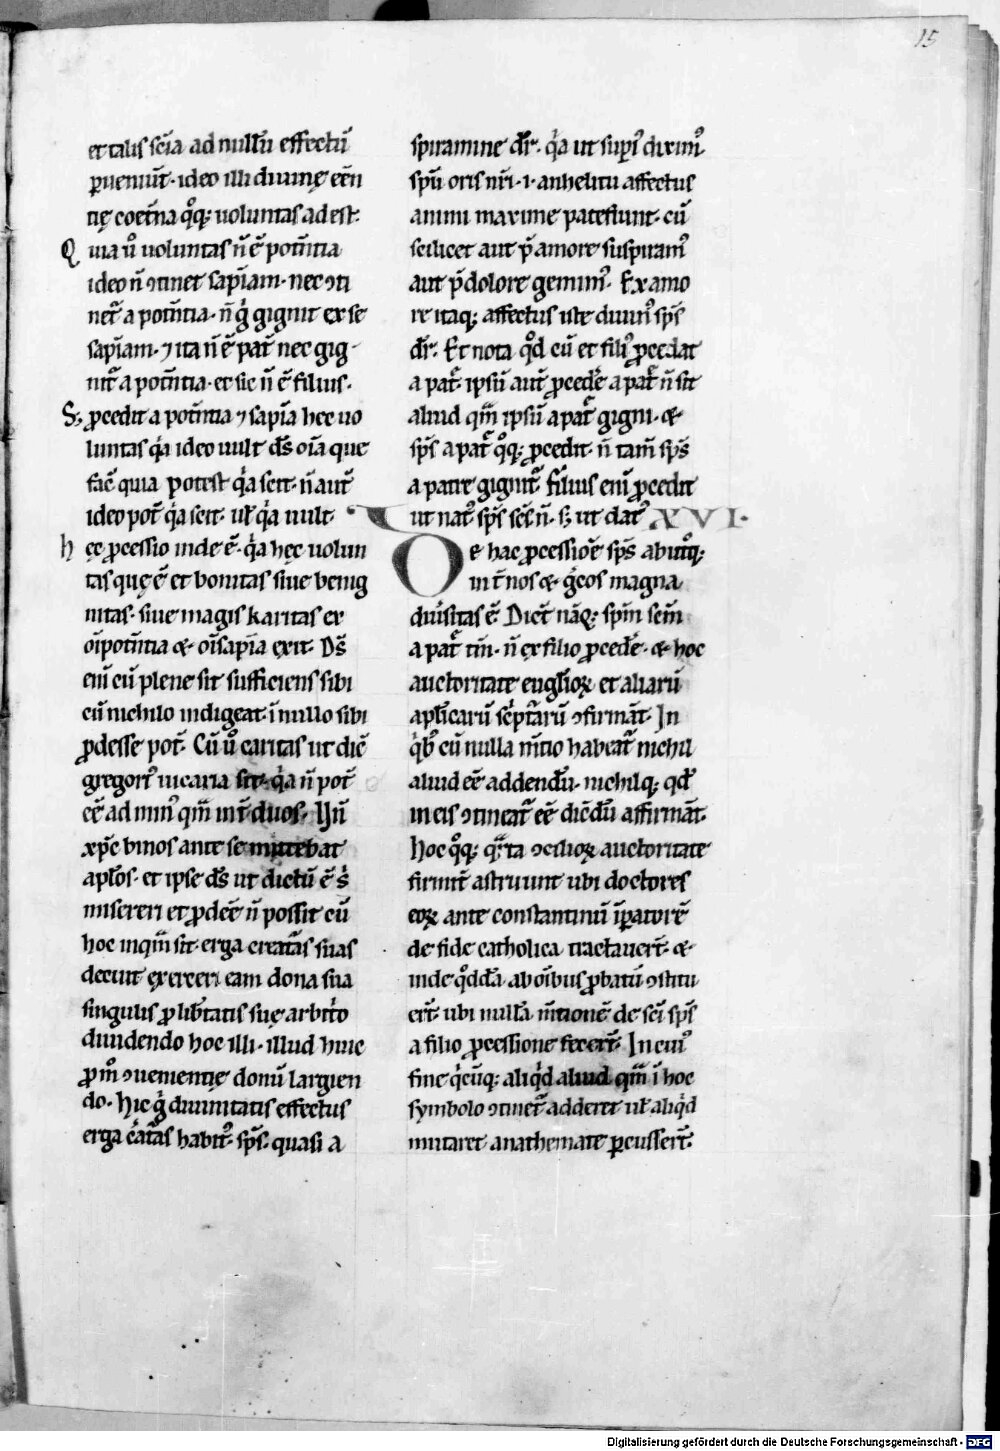 15
et talis scīa ad nullū effectū
ꝑueniūt· ideo illi diuinę eēn
tię coet̄na q̊q; uoluntas adest·
Quia ů uoluntas ñ ē potn̄tia
ideo ñ ↄtinet sapīam· nec ↄti
net᷑ a potn̄tia· ñ ǵ gignit ex se
sapīam· ⁊ ita ñ ē pat̄ nec gig-
nit᷑ a potn̄tia· et sic ñ ē filius·
S; ꝓcedit a potn̄tia ⁊ sapīa hec uo
luntas q̇a ideo uult d̄s oīa que
fac̄ quia potest q̇a scit· ñ aut̄
ideo pot̄ q̇a scit· uł q̇a uult·
hęc ꝓcessio inde ē· q̇a hęc uolun
tas quę ē et bonitas siue benig
nitas· siue magis karitas ex
oīpotn̄tia & oīsapīa exit· D̄s
eni cū plene sit sufficiens sibi
cū nichilo indigeat· ī nullo sibi
ꝓdesse pot̄· Cū ů caritas ut dic̄
gregori᷒ uicaria sit· q̇a ñ pot̄
eē ad min᷒ qm̄ int̄ duos· Un̄
xp̄c binos ante se mittebat
apłos· et ipse d̄s ut dictū ē ṡ
misereri et ꝓdeē ñ possit cū
hoc inqm̄ sit· erga creat᷑as suas
decuit exerceri eam dona sua
singulis ꝓ lib̄tatis suę arbit̊o
diuidendo hoc illi· illud huic
ꝓm̊ ↄuenientię donū largien
do· hic ǵ diuinitatis effectus
erga c̓at᷑as habit᷒· sp̄s· quasi a
spiramine dr̄· q̇a ut supi᷒ dixim᷒
spū oris nr̄i ·i· anhelitu affectus
animi maxime patefiunt· cū
scilicet aut p̄ amore suspiram᷒
aut p̄ dolore gemim᷒· Ex amo
re itaq; affectus iste diuin᷒ sp̄s
dr̄· Et nota q̊d cū et fili᷒ ꝓcedat
a pat̄· ipsū aut̄ ꝓcede᷑ a pat̄ ñ sit
aliud qm̄ ipsū a pat̄ gigni· &
sp̄s a pat̄ q̊q; ꝓcedit· ñ tam̄ sp̄s
a patre gignit᷑ filius eni ꝓcedit
ut nat᷒ sp̄s sc̄s ñ· s; ut dat᷒ XVI·
De hac ꝓcessiōe sp̄s ab ut̊q;
int̄ nos & g̓cos magna
diuśitas ē· Dic̄t nāq; spm̄ scm̄
a pat̄ tm̄· ñ ex filio ꝓcede᷑· & hoc
auctoritate eug̃lioꝝ et aliarū
apłicarū sc̓pt᷑arū ↄfirmāt· In
q̇b᷒ cū nulla m̄tio habeat᷑ nichil
aliud eē addendū· nichilq; qd̄
in eis ↄtineat᷑ eē dicēdū affirmāt·
hoc q̊q; qͣrta ↄcilioꝝ auctoritate
firmit̄ astruunt ubi doctores
eoꝝ ante constantinū īꝑatorē
de fide catholica tractauert̄· &
inde q̊ddā ab oībus ꝓbatū ↄstitu
ert̄· ubi nullā m̄tionē de sc̄i sp̄s
a filio ꝓcessione fecert̄· In cui᷒
fine q̇cūq; aliq̇d aliud qm̄ ī hoc
symbolo ↄtinet᷑ adderet uł aliq̇d
mutaret anathemate ꝑcussert̄·
Digitalisierung gefördert durch die Deutsche Forschungsgemeinschaft - DFG